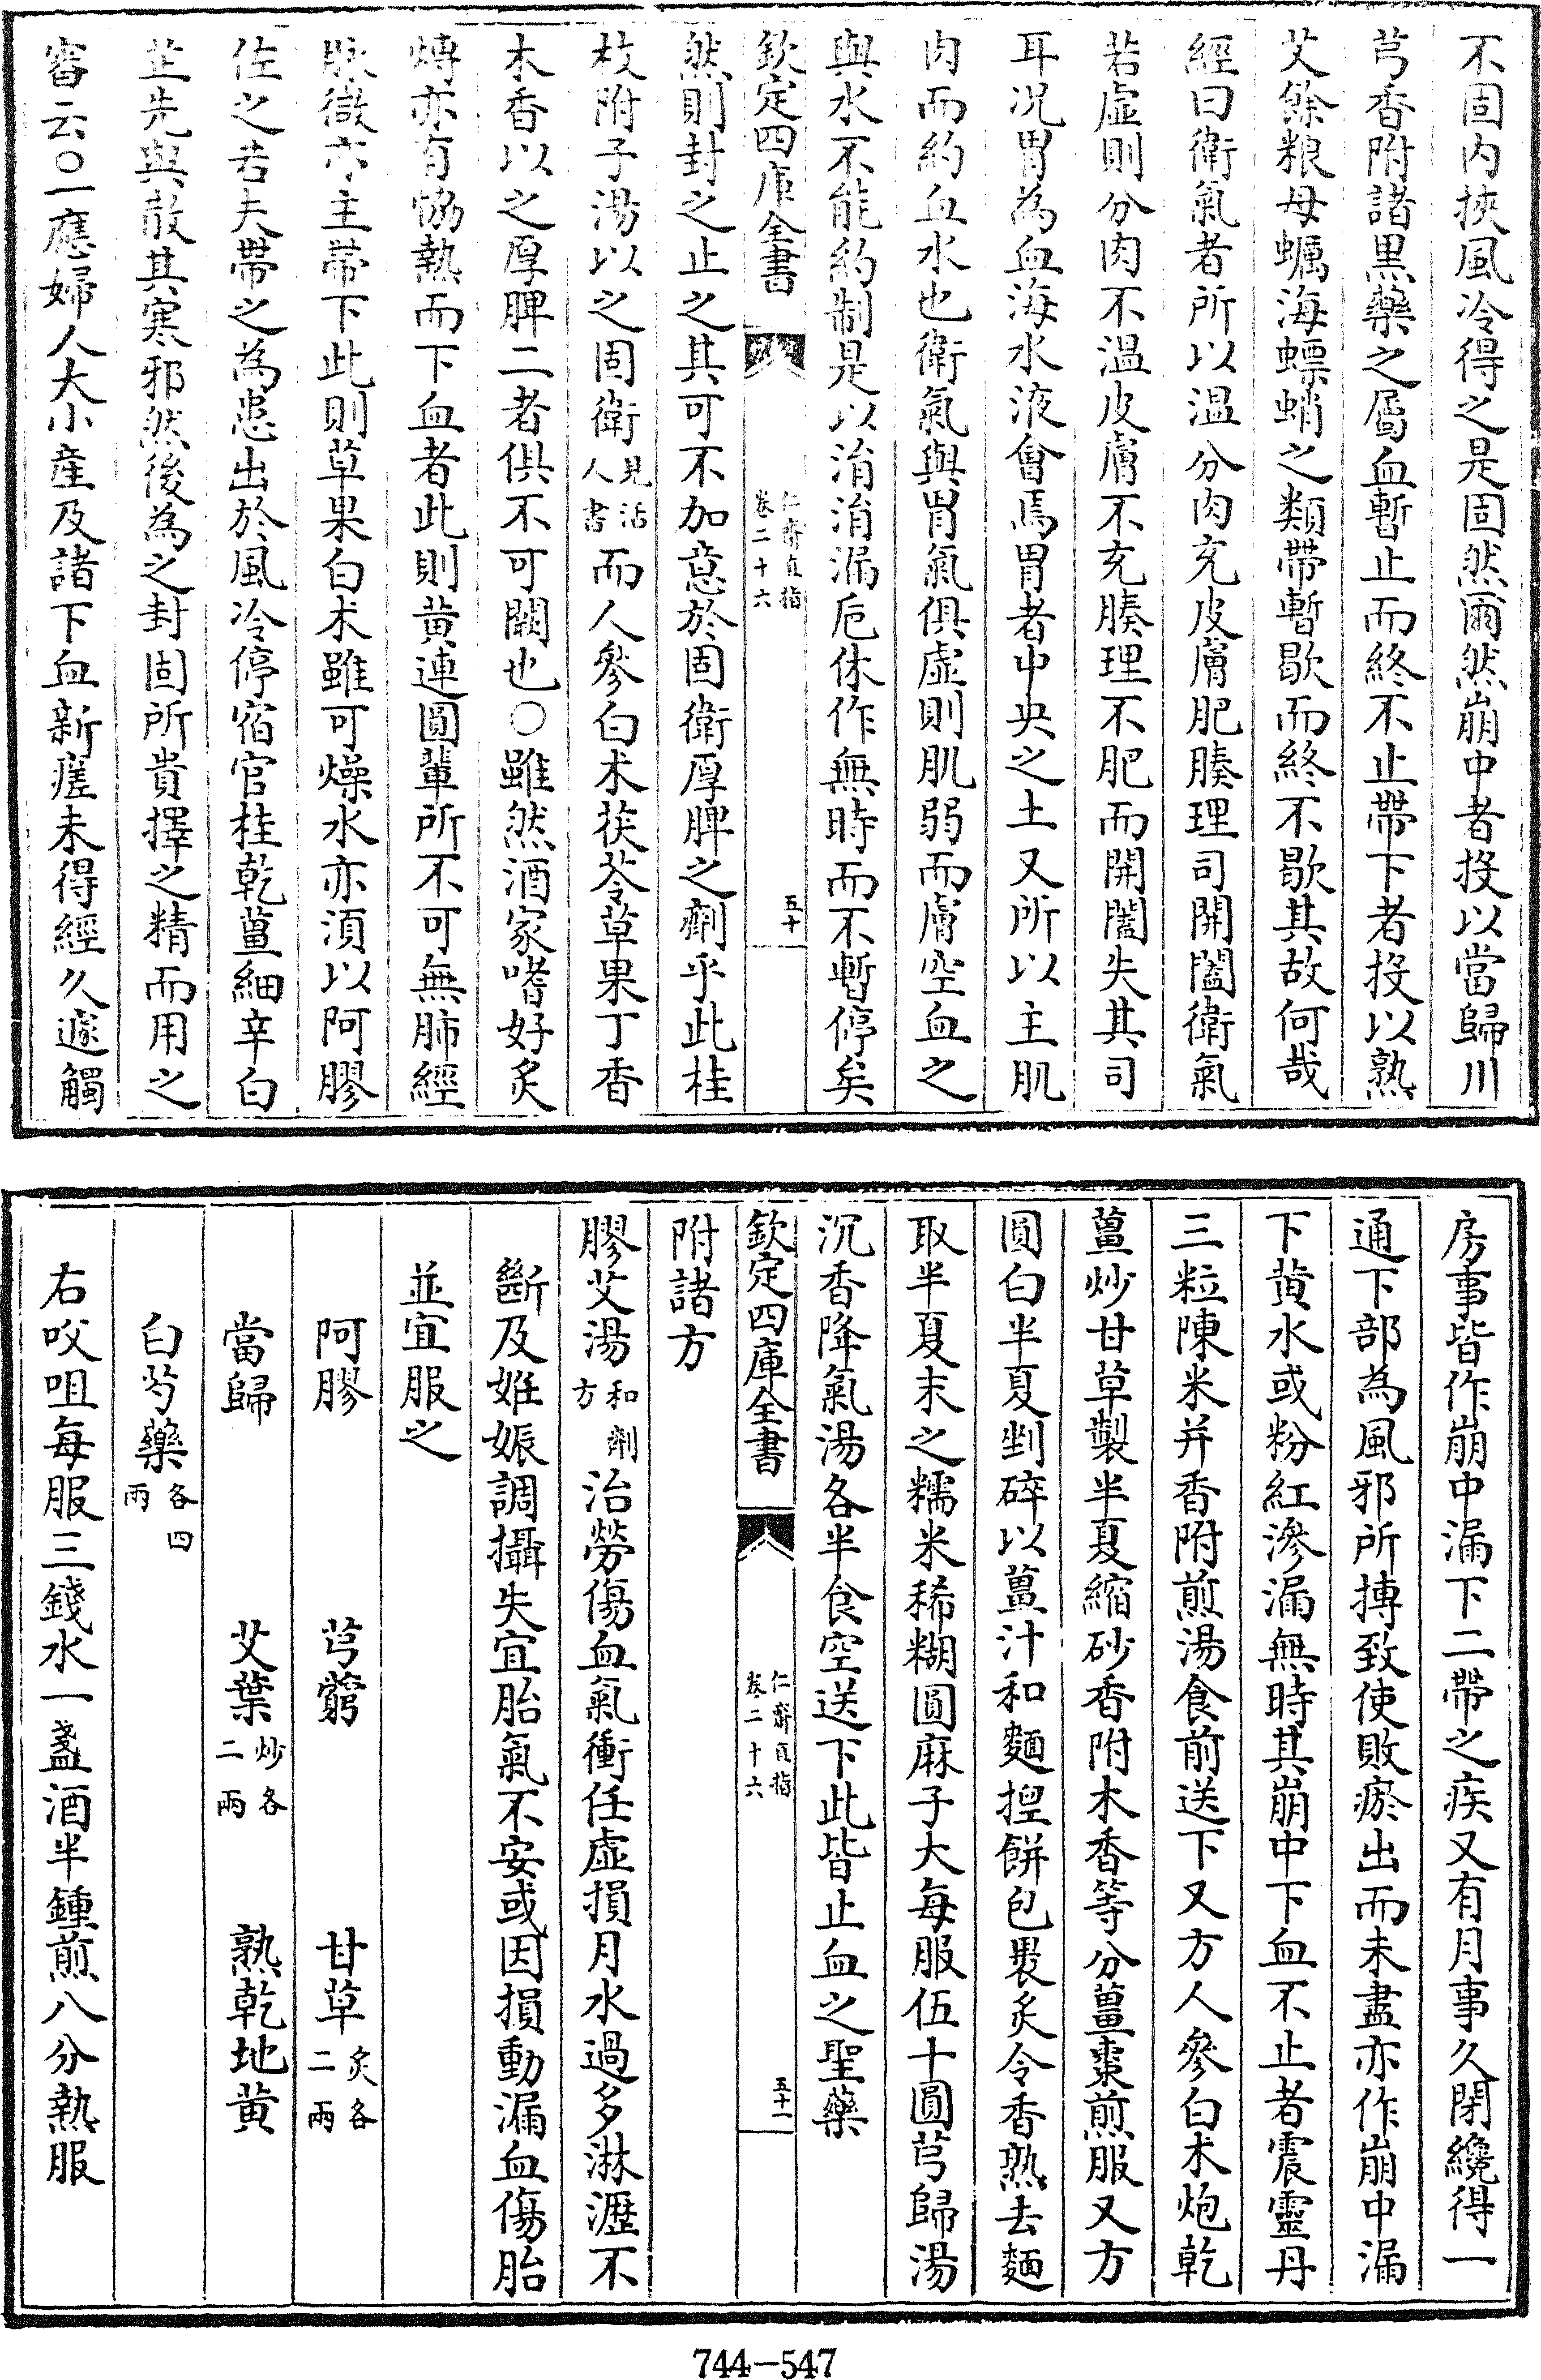 不固内挾風冷得之是固然爾然崩中者投以當歸川
芎香附諸黒藥之屬血暫止而終不止帶下者投以熟
艾餘粮母蠣海螵蛸之類帶暫歇而終不歇其故何哉
經曰衛氣者所以温分肉充皮膚肥腠理司開闔衛氣
若虚則分肉不温皮膚不充腠理不肥而開闔失其司
耳况胃為血海水液會焉胃者中央之土又所以主肌
肉而約血水也衛氣與胃氣俱虚則肌弱而膚空血之
與水不能約制是以涓涓漏巵休作無時而不暫停矣
欽定四庫全書
仁齋直指
卷二十六
五十
然則封之止之其可不加意於固衛厚脾之劑乎此桂
枝附子湯以之固衛見活人書而人參白术茯苓草果丁香
木香以之厚脾二者俱不可闕也○雖然酒家嗜好炙
煿亦有恊熱而下血者此則黄連圓輩所不可無肺經
脉微亦主帶下此則草果白术雖可燥水亦須以阿膠
佐之若夫帶之為患出於風冷停宿官桂乾薑細辛白
芷先與散其寒邪然後為之封固所貴擇之精而用之
審云○一應婦人大小産及諸下血新瘥未得經久遽觸
房事皆作崩中漏下二帶之疾又有月事久閉纔得一
通下部為風邪所搏致使敗瘀出而未盡亦作崩中漏
下黄水或粉紅滲漏無時其崩中下血不止者震靈丹
三粒陳米并香附煎湯食前送下又方人參白术炮乾
薑炒甘草製半夏縮砂香附木香等分薑棗煎服又方
圓白半夏剉碎以薑汁和麵揑餅包褁炙令香熟去麵
取半夏末之糯米稀糊圓麻子大每服伍十圓芎歸湯
沉香降氣湯各半食空送下此皆止血之聖藥
欽定四庫全書
仁齋直指
卷二十六
五十一
附諸方
膠艾湯和劑方治勞傷血氣衝任虚損月水過多淋瀝不
斷及姙娠調攝失宜胎氣不安或因損動漏血傷胎
並宜服之
阿膠　芎藭　甘草炙各二兩
當歸　艾葉炒各二兩　熟乾地黄
白芍藥各四兩
右㕮咀每服三錢水一盞酒半鍾煎八分熱服
744-547